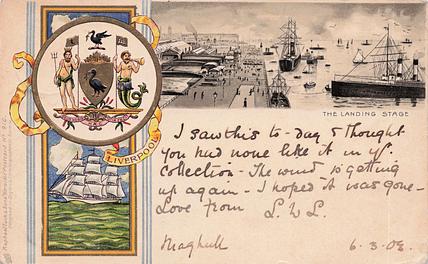 THE LANDING STAGE
LIVERPOOL
I saw this to-day & thought
you had none like it in yr.
collection - The wind is getting
up again - I hoped it was gone -
Love from L.W.L.
Maghull 6.3.02.